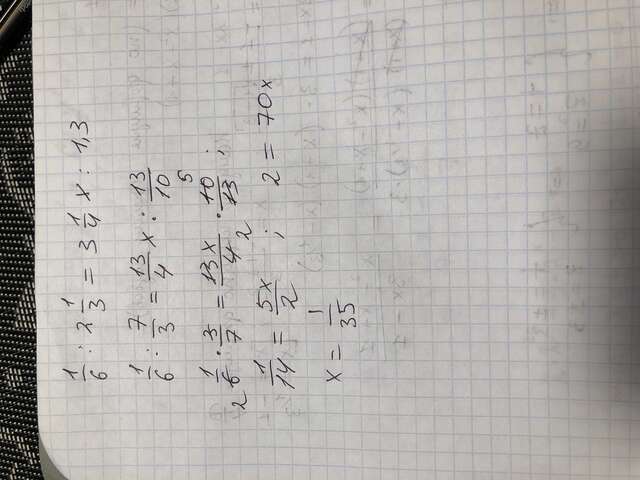 1/6 : 2 1/3 = 3 1/4 x : 1,3
1/6 : 7/3 = 13/4 x : 13/10
1/6 · 3/7 = 13x/4 · 10/13 ;
2 2 5
1/14 = 5x/2 ; 2 = 70x
x = 1/35